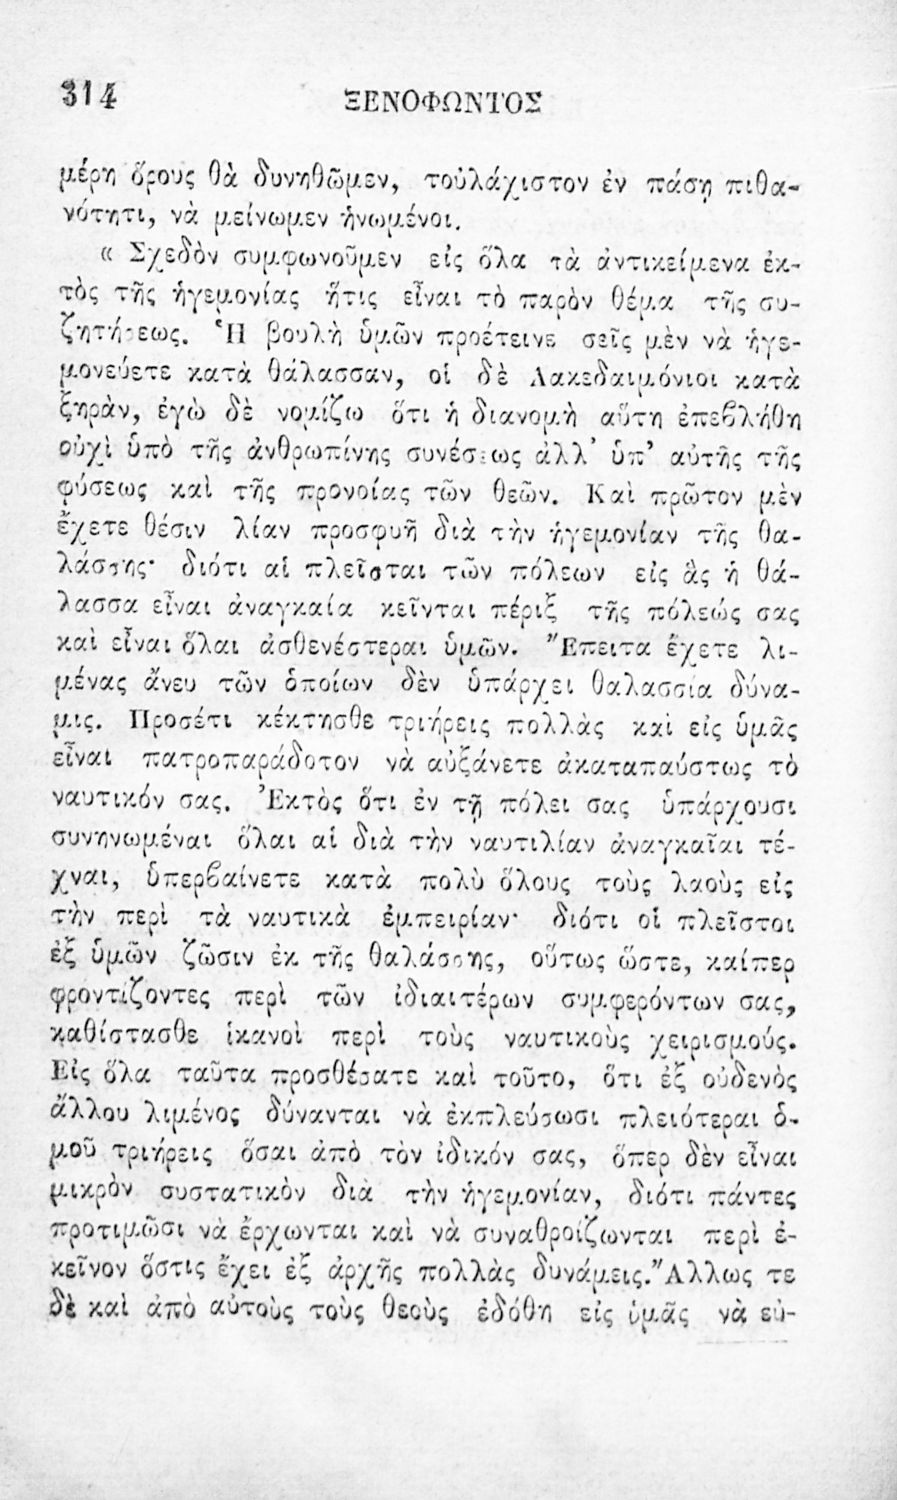 314 ΞΕΝΟΦΩΝΤΟΣ
μέρη ὅρους θὰ δυνηθῶμεν, τοὐλάχιστον ἐν πάσῃ πιθα-
νότητι, νὰ μείνωμεν ἡνωμένοι.
« Σχεδὸν συμφωνοῦμεν εἰς ὅλα τὰ ἀντικείμενα ἐκ-
τὸς τῆς ἡγεμονίας ἥτις εἶναι τὸ παρὸν θέμα τῆς συ-
ζητήσεως. Ἡ βουλὴ ὑμῶν προέτεινε σεῖς μὲν νὰ ἡγε-
μονεύετε κατὰ θάλασσαν, οἱ δὲ Λακεδαιμόνιοι κατὰ
ξηρὰν, ἐγὼ δὲ νομίζω ὅτι ἡ διανομὴ αὕτη ἐπεβλήθη
οὐχὶ ὑπὸ τῆς ἀνθρωπίνης συνέσεως ἀλλ’ ὑπ’ αὐτῆς τῆς
φύσεως καὶ τῆς προνοίας τῶν θεῶν. Καὶ πρῶτον μὲν
ἔχετε θέσιν λίαν προσφυῆ διὰ τὴν ἡγεμονίαν τῆς θα-
λάσσης· διότι αἱ πλεῖσται τῶν πόλεων εἰς ἃς ἡ θά-
λασσα εἶναι ἀναγκαία κεῖνται πέριξ τῆς πόλεώς σας
καὶ εἶναι ὅλαι ἀσθενέστεραι ὑμῶν. Ἔπειτα ἔχετε λι-
μένας ἄνευ τῶν ὁποίων δὲν ὑπάρχει θαλασσία δύνα-
μις. Προσέτι κέκτησθε τριήρεις πολλὰς καὶ εἰς ὑμᾶς
εἶναι πατροπαράδοτον νὰ αὐξάνετε ἀκαταπαύστως τὸ
ναυτικόν σας. Ἐκτὸς ὅτι ἐν τῇ πόλει σας ὑπάρχουσι
συνηνωμέναι ὅλαι αἱ διὰ τὴν ναυτιλίαν ἀναγκαῖαι τέ-
χναι, ὑπερβαίνετε κατὰ πολὺ ὅλους τοὺς λαοὺς εἰς
τὴν περὶ τὰ ναυτικὰ ἐμπειρίαν· διότι οἱ πλεῖστοι
ἐξ ὑμῶν ζῶσιν ἐκ τῆς θαλάσσης, οὕτως ὥστε, καίπερ
φροντίζοντες περὶ τῶν ἰδιαιτέρων συμφερόντων σας,
καθίστασθε ἱκανοὶ περὶ τοὺς ναυτικοὺς χειρισμούς.
Εἰς ὅλα ταῦτα προσθέσατε καὶ τοῦτο, ὅτι ἐξ οὐδενὸς
ἄλλου λιμένος δύνανται νὰ ἐκπλεύσωσι πλειότεραι ὁ-
μοῦ τριήρεις ὅσαι ἀπὸ τὸν ἰδικόν σας, ὅπερ δὲν εἶναι
μικρὸν συστατικὸν διὰ τὴν ἡγεμονίαν, διότι πάντες
προτιμῶσι νὰ ἔρχωνται καὶ νὰ συναθροίζωνται περὶ ἐ-
κεῖνον ὅστις ἔχει ἐξ ἀρχῆς πολλὰς δυνάμεις. Ἄλλως τε
δὲ καὶ ἀπὸ αὐτοὺς τοὺς θεοὺς ἐδόθη εἰς ὑμᾶς νὰ εὐ-